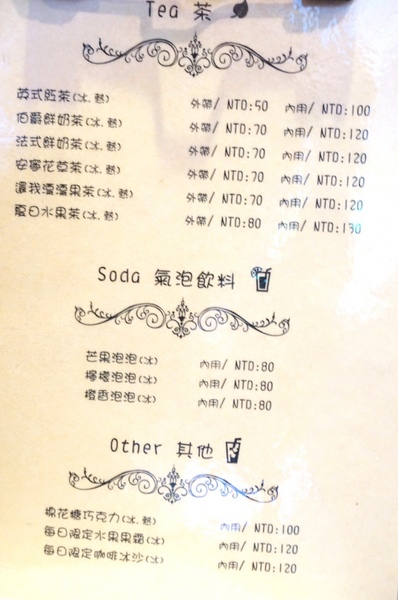 Tea 茶
英式紅茶(冰.熱) 外帶/ NTD:50 內用/ NTD:100
伯爵鮮奶茶(冰.熱) 外帶/ NTD:70 內用/ NTD:120
法式鮮奶茶(冰.熱) 外帶/ NTD:70 內用/ NTD:120
安寧花草茶(冰.熱) 外帶/ NTD:70 內用/ NTD:120
還我漂漂果茶(冰.熱) 外帶/ NTD:70 內用/ NTD:120
夏日水果茶(冰.熱) 外帶/ NTD:80 內用/ NTD:130
Soda 氣泡飲料
芒果泡泡(冰) 內用/ NTD:80
檸檬泡泡(冰) 內用/ NTD:80
橙香泡泡(冰) 內用/ NTD:80
Other 其他
棉花糖巧克力(冰.熱) 內用/ NTD:100
每日限定水果果霜(冰) 內用/ NTD:120
每日限定咖啡冰沙(冰) 內用/ NTD:120